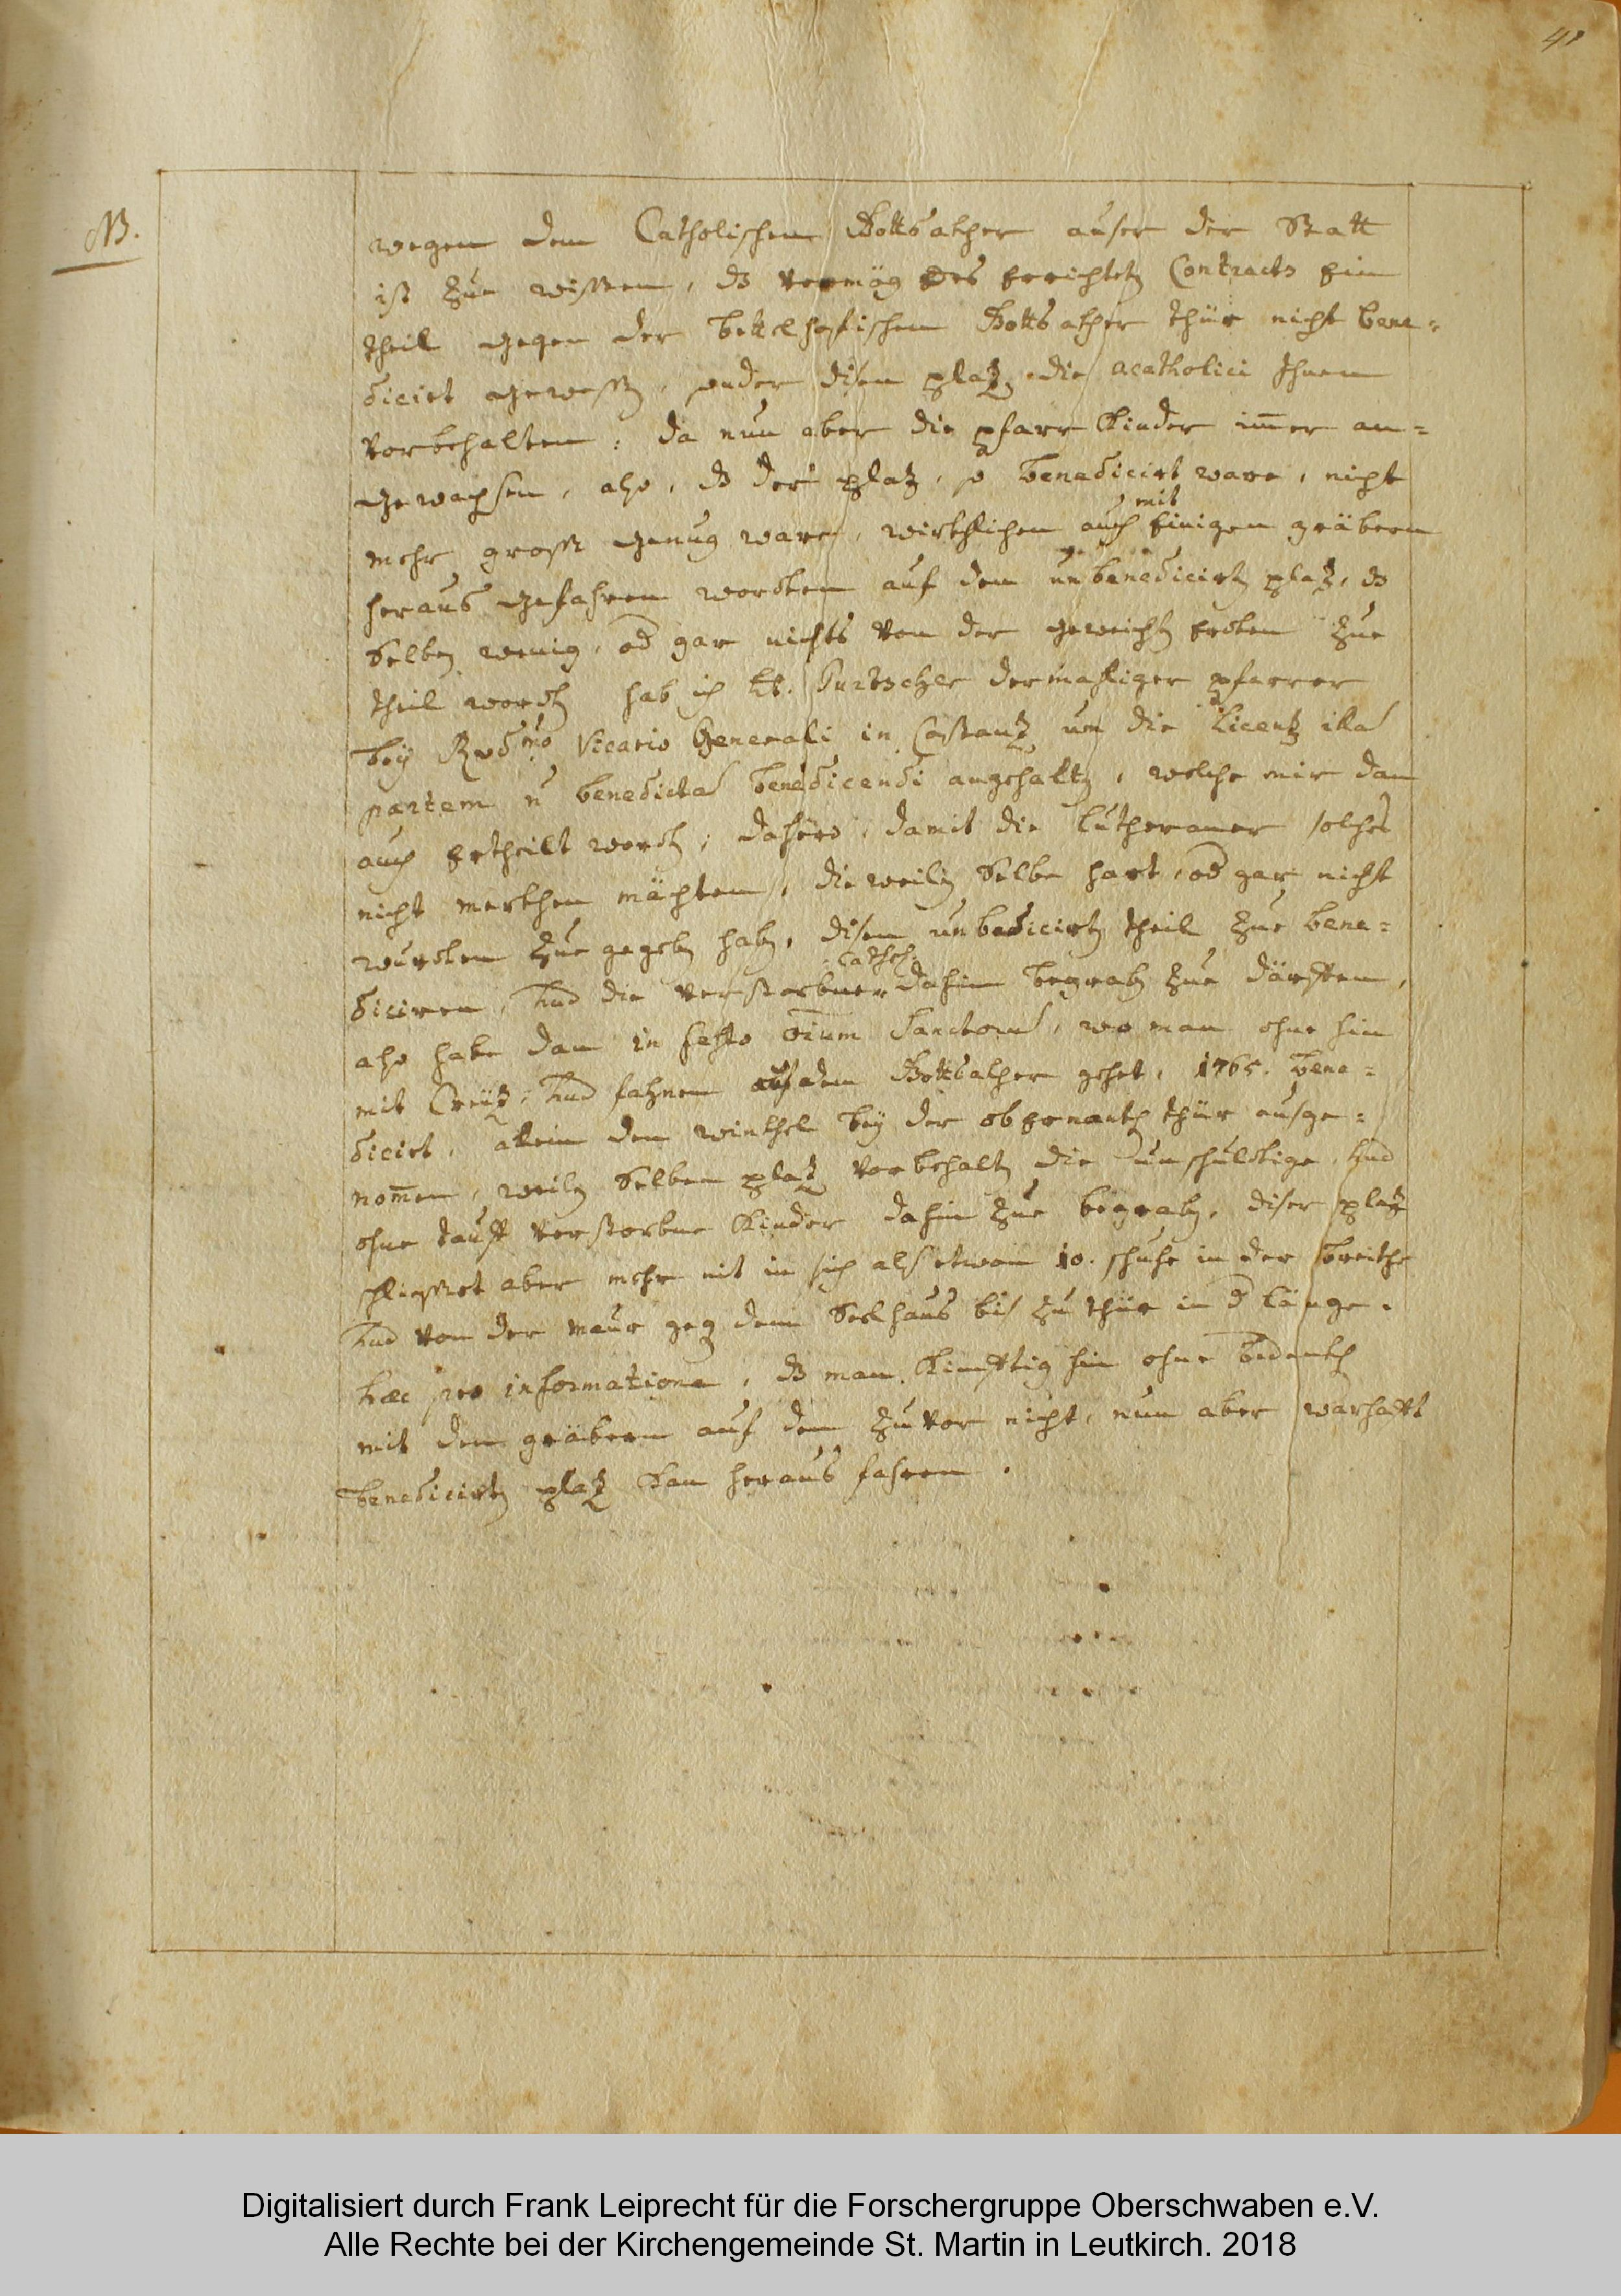 41
NB.
wegen dem Catholischen Gottsakher auser der Statt
ist zue wissen, dz vermög des errichteten Contracts ein
theil gegen der bettelhofischen Gottsakher thür nicht bene=
dicirt gewessen, sonder disen platz die acatholici Ihnen
vorbehalten: da nun aber die pfarr Kinder imer an=
gewachsen, also, dz der platz, so benedicirt ware, nicht
mehr gross genug ware, wirkhlichen auch mit einigen gräberen
heraus gefahren worden auf den unbenedicirten platz, dz
Selben wenig, od gar nichts von der geweichten erden zue
theil worden hab ich
dermahliger pfarrer
bey Rvdmo Vicario Generali in Costantz um die Licentz illa
partem n benedicta benedicendi angehalten, welche mir dan
auch ertheilt worden; dahero, damit die Lutheraner solches
nicht merkhen möchten, dieweilen Selbe hart, od gar nicht
wurden zue gegeben haben, disen unbedicirten theil zue bene=
diciren, Und die verstorbner Cathol: dahin begraben zue dörffen,
also habe dan in festo Oium Sanctorum, wo man ohne hin
mit Creütz, Und fahnen auf den Gottsakher gehet, 1765. bene=
dicirt, allein den winkhel bey der obernanten thür ausge=
nomen, weilen Selben platz vorbehalten die unschuldige, Und
ohne tauff verstorbne Kinder dahin zue begraben, diser platz
schliesset aber mehr nit in sich als etwan 10. schuhe in der breithe
Und von der maur gegen dem Seelhaus bis zu thür in d länge.
Haec pro informatione, dz man Kinfftig hin ohne bedenkhen
mit den gräberen auf den zuvor nicht, nun aber warhafft
benedicirten platz kan heraus fahren.
Digitalisiert durch Frank Leiprecht für die Forschergruppe Oberschwaben e.V.
Alle Rechte bei der Kirchengemeinde St. Martin in Leutkirch. 2018